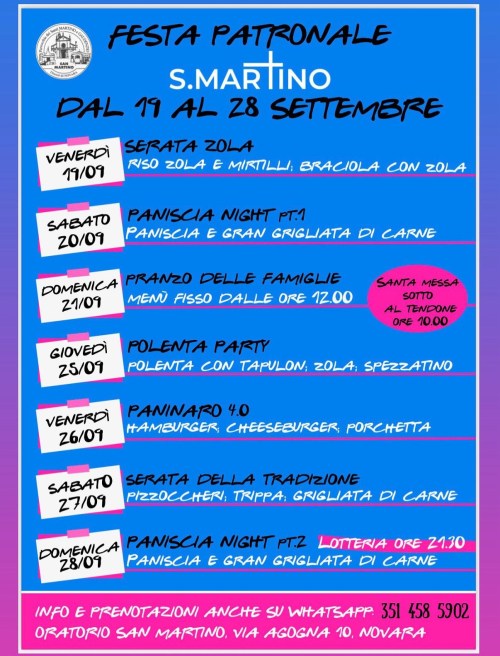 SAN MARTINO
FESTA PATRONALE
S.MARTINO
DAL 19 AL 28 SETTEMBRE
VENERDÌ
19/09
SERATA ZOLA
RISO ZOLA E MIRTILLI; BRACIOLA CON ZOLA
SABATO
20/09
PANISCIA NIGHT PT.1
PANISCIA E GRAN GRIGLIATA DI CARNE
DOMENICA
21/09
PRANZO DELLE FAMIGLIE
MENÙ FISSO DALLE ORE 12.00
SANTA MESSA
SOTTO
AL TENDONE
ORE 10.00
GIOVEDÌ
25/09
POLENTA PARTY
POLENTA CON TAPULON; ZOLA; SPEZZATINO
VENERDÌ
26/09
PANINARO 4.0
HAMBURGER; CHEESEBURGER; PORCHETTA
SABATO
27/09
SERATA DELLA TRADIZIONE
PIZZOCCHERI; TRIPPA; GRIGLIATA DI CARNE
DOMENICA
28/09
PANISCIA NIGHT PT.2 LOTTERIA ORE 21.30
PANISCIA E GRAN GRIGLIATA DI CARNE
INFO E PRENOTAZIONI ANCHE SU WHATSAPP: 351 458 5902
ORATORIO SAN MARTINO, VIA AGOGNA 10, NOVARA